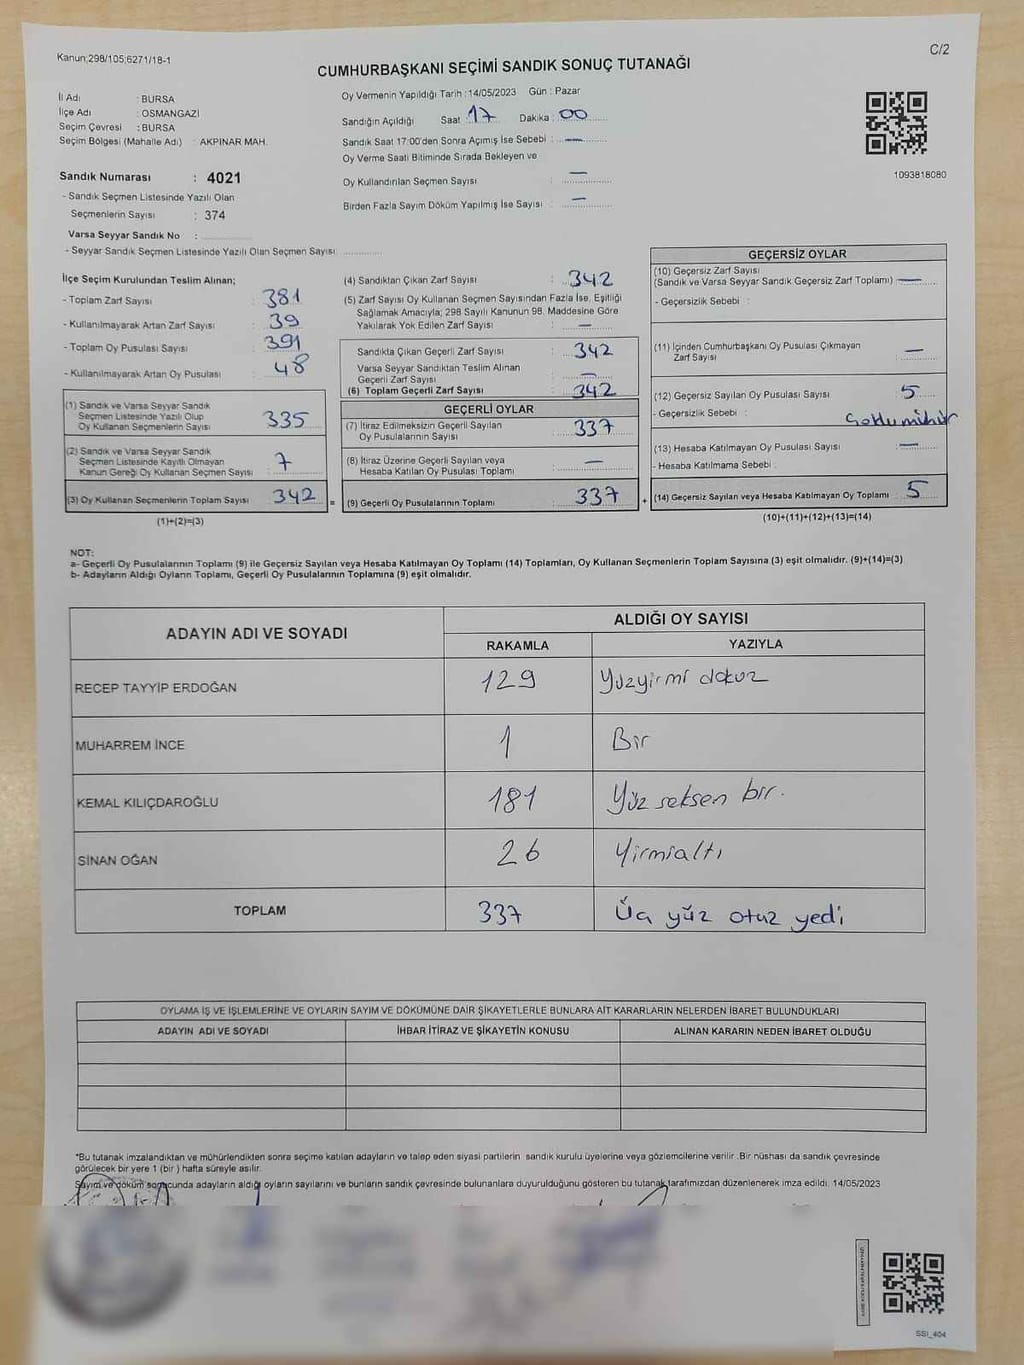 Kanun;298/105;6271/18-1
C/2
CUMHURBAŞKANI SEÇİMİ SANDIK SONUÇ TUTANAĞI
İl Adı : BURSA
İlçe Adı : OSMANGAZİ
Seçim Çevresi : BURSA
Seçim Bölgesi (Mahalle Adı) : AKPINAR MAH.
Oy Vermenin Yapıldığı Tarih :14/05/2023 Gün : Pazar
Sandığın Açıldığı Saat : 17 Dakika : 00
Sandık Saat 17:00'den Sonra Açımış İse Sebebi : —
Oy Verme Saati Bitiminde Sırada Bekleyen ve
Oy Kullandırılan Seçmen Sayısı : —
Birden Fazla Sayım Döküm Yapılmış İse Sayısı : —
1093818080
Sandık Numarası : 4021
- Sandık Seçmen Listesinde Yazılı Olan
Seçmenlerin Sayısı : 374
Varsa Seyyar Sandık No :
- Seyyar Sandık Seçmen Listesinde Yazılı Olan Seçmen Sayısı:
İlçe Seçim Kurulundan Teslim Alınan;
- Toplam Zarf Sayısı : 381
- Kullanılmayarak Artan Zarf Sayısı : 39
- Toplam Oy Pusulası Sayısı : 391
- Kullanılmayarak Artan Oy Pusulası : 48
(1) Sandık ve Varsa Seyyar Sandık
Seçmen Listesinde Yazılı Olup
Oy Kullanan Seçmenlerin Sayısı : 335
(2) Sandık ve Varsa Seyyar Sandık
Seçmen Listesinde Kayıtlı Olmayan
Kanun Gereği Oy Kullanan Seçmen Sayısı : 7
(3) Oy Kullanan Seçmenlerin Toplam Sayısı : 342
(1)+(2)=(3)
(4) Sandıktan Çıkan Zarf Sayısı : 342
(5) Zarf Sayısı Oy Kullanan Seçmen Sayısından Fazla İse, Eşitliği
Sağlamak Amacıyla; 298 Sayılı Kanunun 98. Maddesine Göre
Yakılarak Yok Edilen Zarf Sayısı : —
Sandıkta Çıkan Geçerli Zarf Sayısı : 342
Varsa Seyyar Sandıktan Teslim Alınan
Geçerli Zarf Sayısı : —
(6) Toplam Geçerli Zarf Sayısı : 342
GEÇERLİ OYLAR
(7) İtiraz Edilmeksizin Geçerli Sayılan
Oy Pusulalarının Sayısı : 337
(8) İtiraz Üzerine Geçerli Sayılan veya
Hesaba Katılan Oy Pusulası Toplamı : —
= (9) Geçerli Oy Pusulalarının Toplamı : 337
GEÇERSİZ OYLAR
(10) Geçersiz Zarf Sayısı
(Sandık ve Varsa Seyyar Sandık Geçersiz Zarf Toplamı) : —
- Geçersizlik Sebebi :
(11) İçinden Cumhurbaşkanı Oy Pusulası Çıkmayan
Zarf Sayısı : —
(12) Geçersiz Sayılan Oy Pusulası Sayısı : 5
- Geçersizlik Sebebi : mühür
(13) Hesaba Katılmayan Oy Pusulası Sayısı : —
- Hesaba Katılmama Sebebi :
+ (14) Geçersiz Sayılan veya Hesaba Katılmayan Oy Toplamı : 5
(10)+(11)+(12)+(13)=(14)
NOT:
a- Geçerli Oy Pusulalarının Toplamı (9) ile Geçersiz Sayılan veya Hesaba Katılmayan Oy Toplamı (14) Toplamları, Oy Kullanan Seçmenlerin Toplam Sayısına (3) eşit olmalıdır. (9)+(14)=(3)
b- Adayların Aldığı Oyların Toplamı, Geçerli Oy Pusulalarının Toplamına (9) eşit olmalıdır.
ADAYIN ADI VE SOYADI
ALDIĞI OY SAYISI
RAKAMLA YAZIYLA
RECEP TAYYİP ERDOĞAN 129 Yüzyirmi dokuz
MUHARREM İNCE 1 Bir
KEMAL KILIÇDAROĞLU 181 Yüz seksen bir.
SİNAN OĞAN 26 Yirmialtı
TOPLAM 337 Üç yüz otuz yedi
OYLAMA İŞ VE İŞLEMLERİNE VE OYLARIN SAYIM VE DÖKÜMÜNE DAİR ŞİKAYETLERLE BUNLARA AİT KARARLARIN NELERDEN İBARET BULUNDUKLARI
ADAYIN ADI VE SOYADI İHBAR İTİRAZ VE ŞİKAYETİN KONUSU ALINAN KARARIN NEDEN İBARET OLDUĞU
*Bu tutanak imzalandıktan ve mühürlendikten sonra seçime katılan adayların ve talep eden siyasi partilerin sandık kurulu üyelerine veya gözlemcilerine verilir .Bir nüshası da sandık çevresinde
görülecek bir yere 1 (bir ) hafta süreyle asılır.
Sayım ve döküm sonucunda adayların aldığı oyların sayılarını ve bunların sandık çevresinde bulunanlara duyurulduğunu gösteren bu tutanak tarafımızdan düzenlenerek imza edildi. 14/05/2023
SSI_404